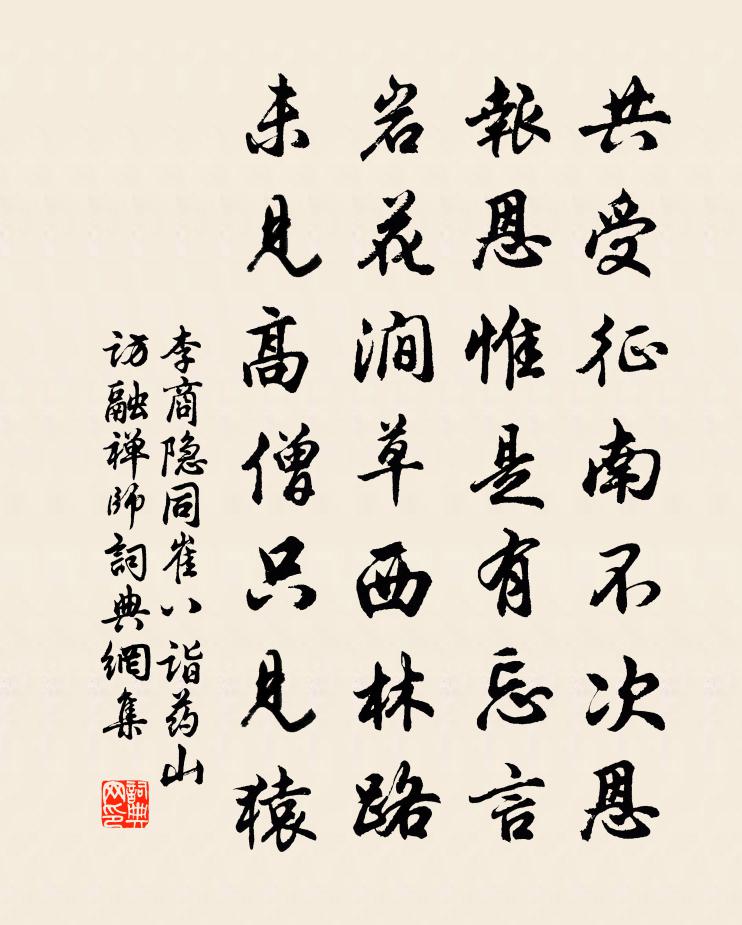 共受征南不次恩
報恩惟是有忘言
岩花澗草西林路
未見高僧只見猿
李商隐同崔八诣药山
访融禅師詞典網集
詞典网印